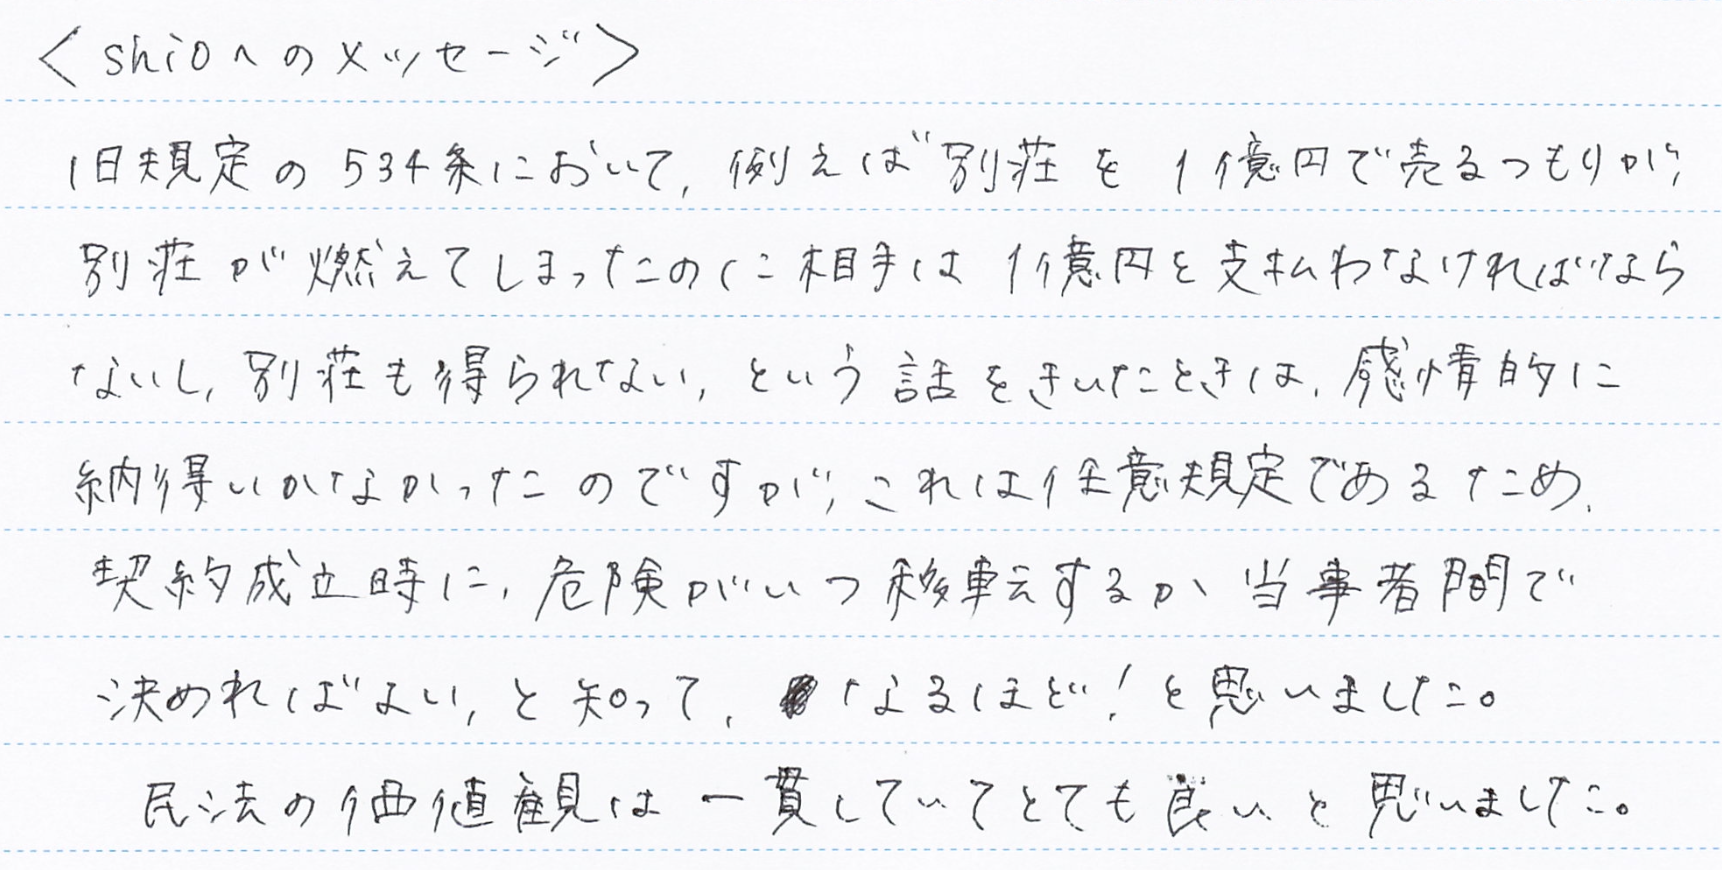 <shioへのメッセージ>
旧規定の534条において, 例えば別荘を1億円で売るつもりが,
別荘が燃えてしまったのに相手は1億円を支払わなければなら
ないし, 別荘も得られない, という話をきいたときは, 感情的に
納得いかなかったのですが, これは任意規定であるため,
契約成立時に, 危険がいつ移転するか当事者間で
決めればよい, と知って, なるほど!と思いました。
民法の価値観は一貫していてとても良いと思いました。